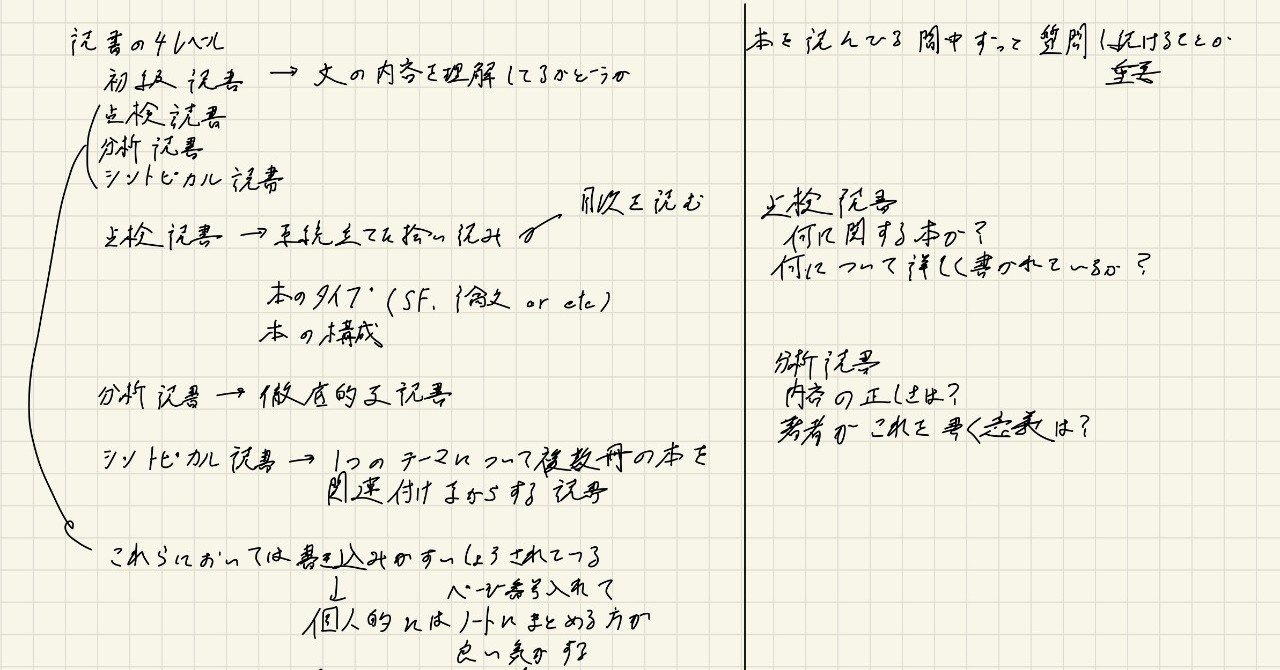 読書の4レベル
初級読書 → 文の内容を理解してるかどうか
点検読書
分析読書
シントピカル読書
点検読書 → 系統立てた拾い読み
目次を読む
本のタイプ (SF, 論文 or etc)
本の構成
分析読書 → 徹底的な読書
シントピカル読書 → 1つのテーマについて複数冊の本を
関連付けながらする読書
これらにおいては書き込みがすいしょうされている
↓
ページ番号入れて
個人的にはノートにまとめる方が
良い気がする
本を読んでる間中ずっと質問し続けることが
重要
点検読書
何に関する本か?
何について詳しく書かれているか?
分析読書
内容の正しさは?
著者がこれを書く意義は?